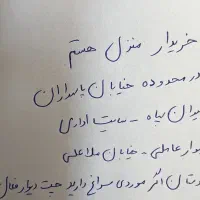 خریدار منزل هستم
در محدوده خیابان پاسداران
میدان سپاه - سایت اداری
بلوار عاملی - خیابان ملاعلی
دوستان اگر موردی سراغ دارید جهت دیوار فعال